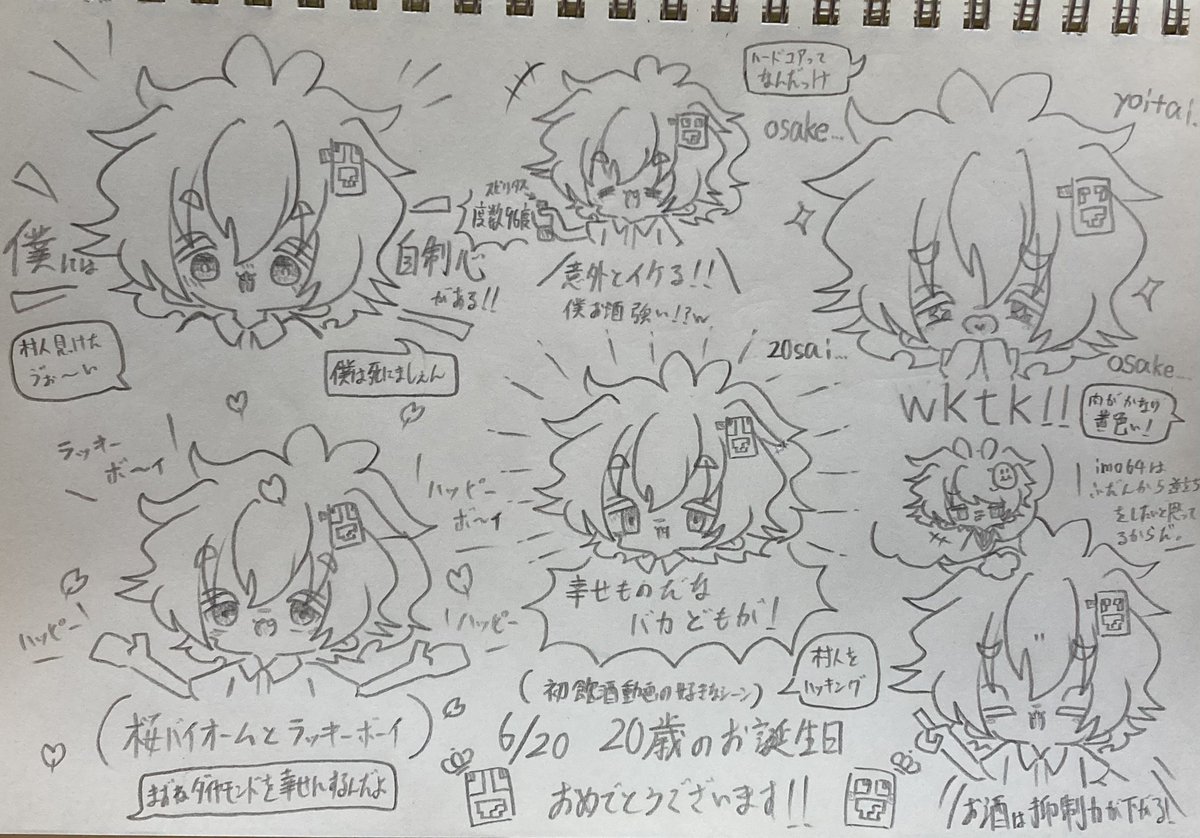 ハードコアって
なんだっけ
osake...
yoitai.
僕には
自制心
がある!!
スピリタス
度数96度
意外とイケる!!
僕お酒強い!?w
村人見っけた
うぉ〜い
僕は死にましぇん
20sai...
osake...
wktk!!
肉がかなり
黄色い!
ラッキー
ボーイ
ハッピー
ボーイ
ハッピー
ハッピー
imo64は
ふだんから逆立ち
をしたいと思って
るからだ。
幸せものだな
バカどもが!
(初飲酒動画の好きなシーン)
村人を
ハッキング
(桜バイオームとラッキーボーイ)
まずねダイヤモンドを幸せにするんだよ
6/20 20歳のお誕生日
おめでとうございます!!
お酒は抑制力が下がる!